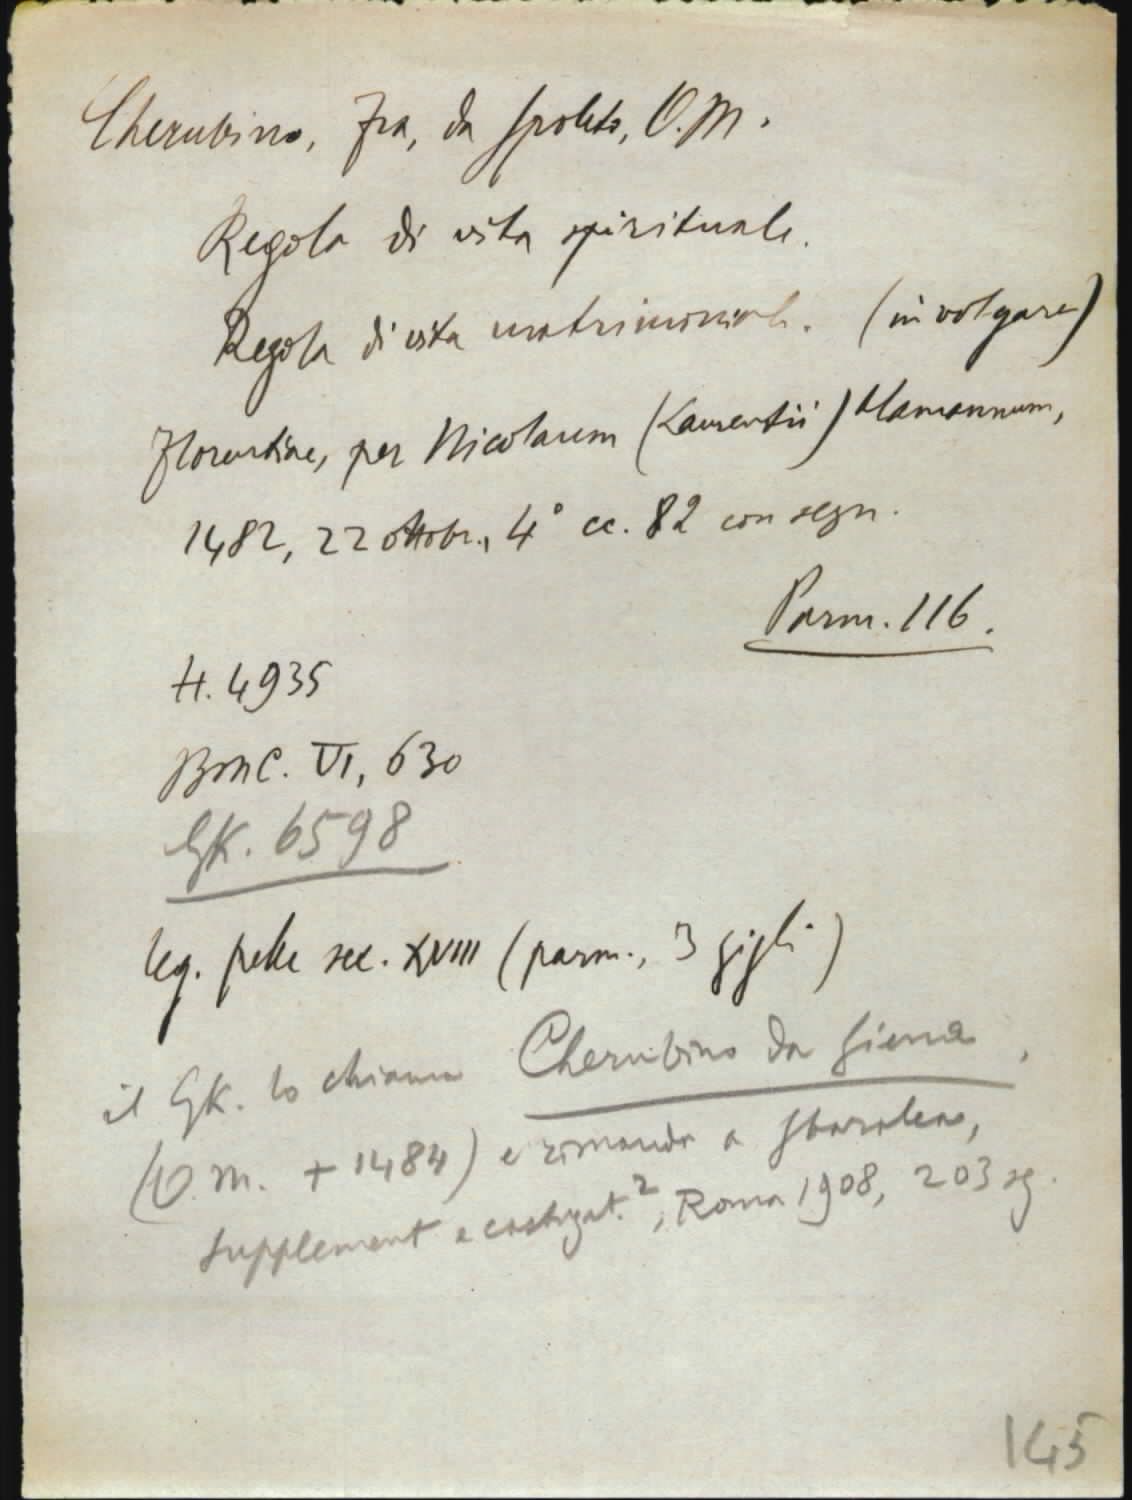 Cherubino, Fra, da Spoleto, O.M.
Regola di vita spirituale.
Regola di vita matrimoniale. (in volgare)
Florentiae, per Nicolaum (Laurentii) Alamannum,
1482, 22 ottobr., 4° cc. 82 con segn.
Parm. 116.
H. 4935
BMC. VI, 630
GK. 6598
leg. pelle sec. XVIII (parm., 3 gigli)
il GK. lo chiama Cherubino da Siena,
(O.M. + 1484) e rimanda a Sbaralea,
Supplement e castigat.², Roma 1908, 203 sg.
145